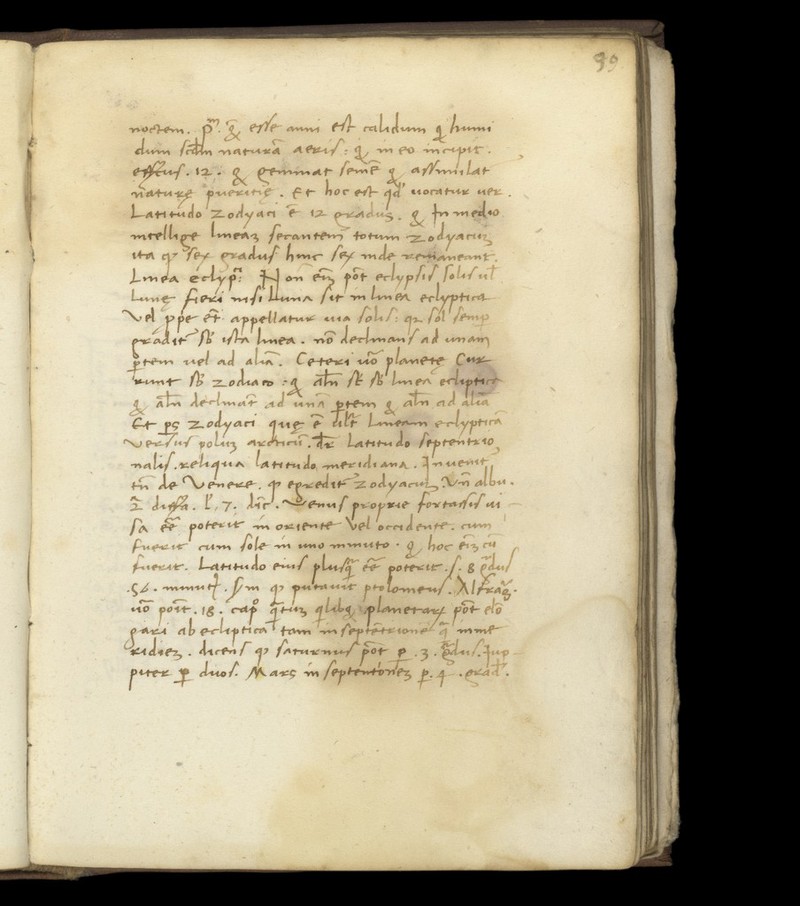 99
noctem. p̄m. q̄ esse anni est calidum q̄ humi
dum scdm naturā aeris: q̄ in eo incipit.
effectus. 12. q̄ geminat semē q̄ assimilat
naturę pueritię. Et hoc est qd' uocatur uer.
Latitudo zodyaci ē 12 graduz. q̄ In medio
intellige lineam secantem totum zodyacuz
ita qꝫ sex gradus hinc sex inde remaneant.
Linea eclypt: Non eīz pōt eclypsis solis ul'
Lunę fieri nisi Luna sit in linea ecliptica
Vel ꝓpe et appellatur uia solis: qꝫ sol semꝑ
gradit' sb' ista linea. nō declinans ad unam
ꝑtem uel ad aliā. Ceteri uō planetę Cur
runt sb' zodiaco: q̄ aln̄ st̄ sb' linea ecliptica
q̄ aln̄ declinant ad unā ꝑtem q̄ aln̄ ad aliā
Et ꝑs zodyaci quę ē ult' Lineam eclypticā
versus poluz arcticū. dr̄ latitudo septentrio
nalis. reliqua latitudo meridiana. Inuenit'
tn̄ de Venere. qꝫ egredit' zodyacuz. Vn̄ albu.
2 diffa. l'. 7. dic̄. Venus proprie fortassis ui
sa eē poterit in oriente vel occidente. cum
fuerit cum sole in uno minuto. q̄ hoc eīz cū
fuerit. Latitudo eius plusq̄ eē poterit. s. 8 gdus
.56. minut. Sm qꝫ putauit ptolomeus. Alfrag.
uō poīt. 18. cap° q̄tum q̄libꝫ planetarꝝ pōt elō
gari ab ecliptica tam in septētrionē q̄ in me
ridiez. dicens qꝫ saturnus pōt ꝑ. 3. gdus. Iup
piter ꝑ duos. Mars in septentrionez ꝑ. 4. grad'.